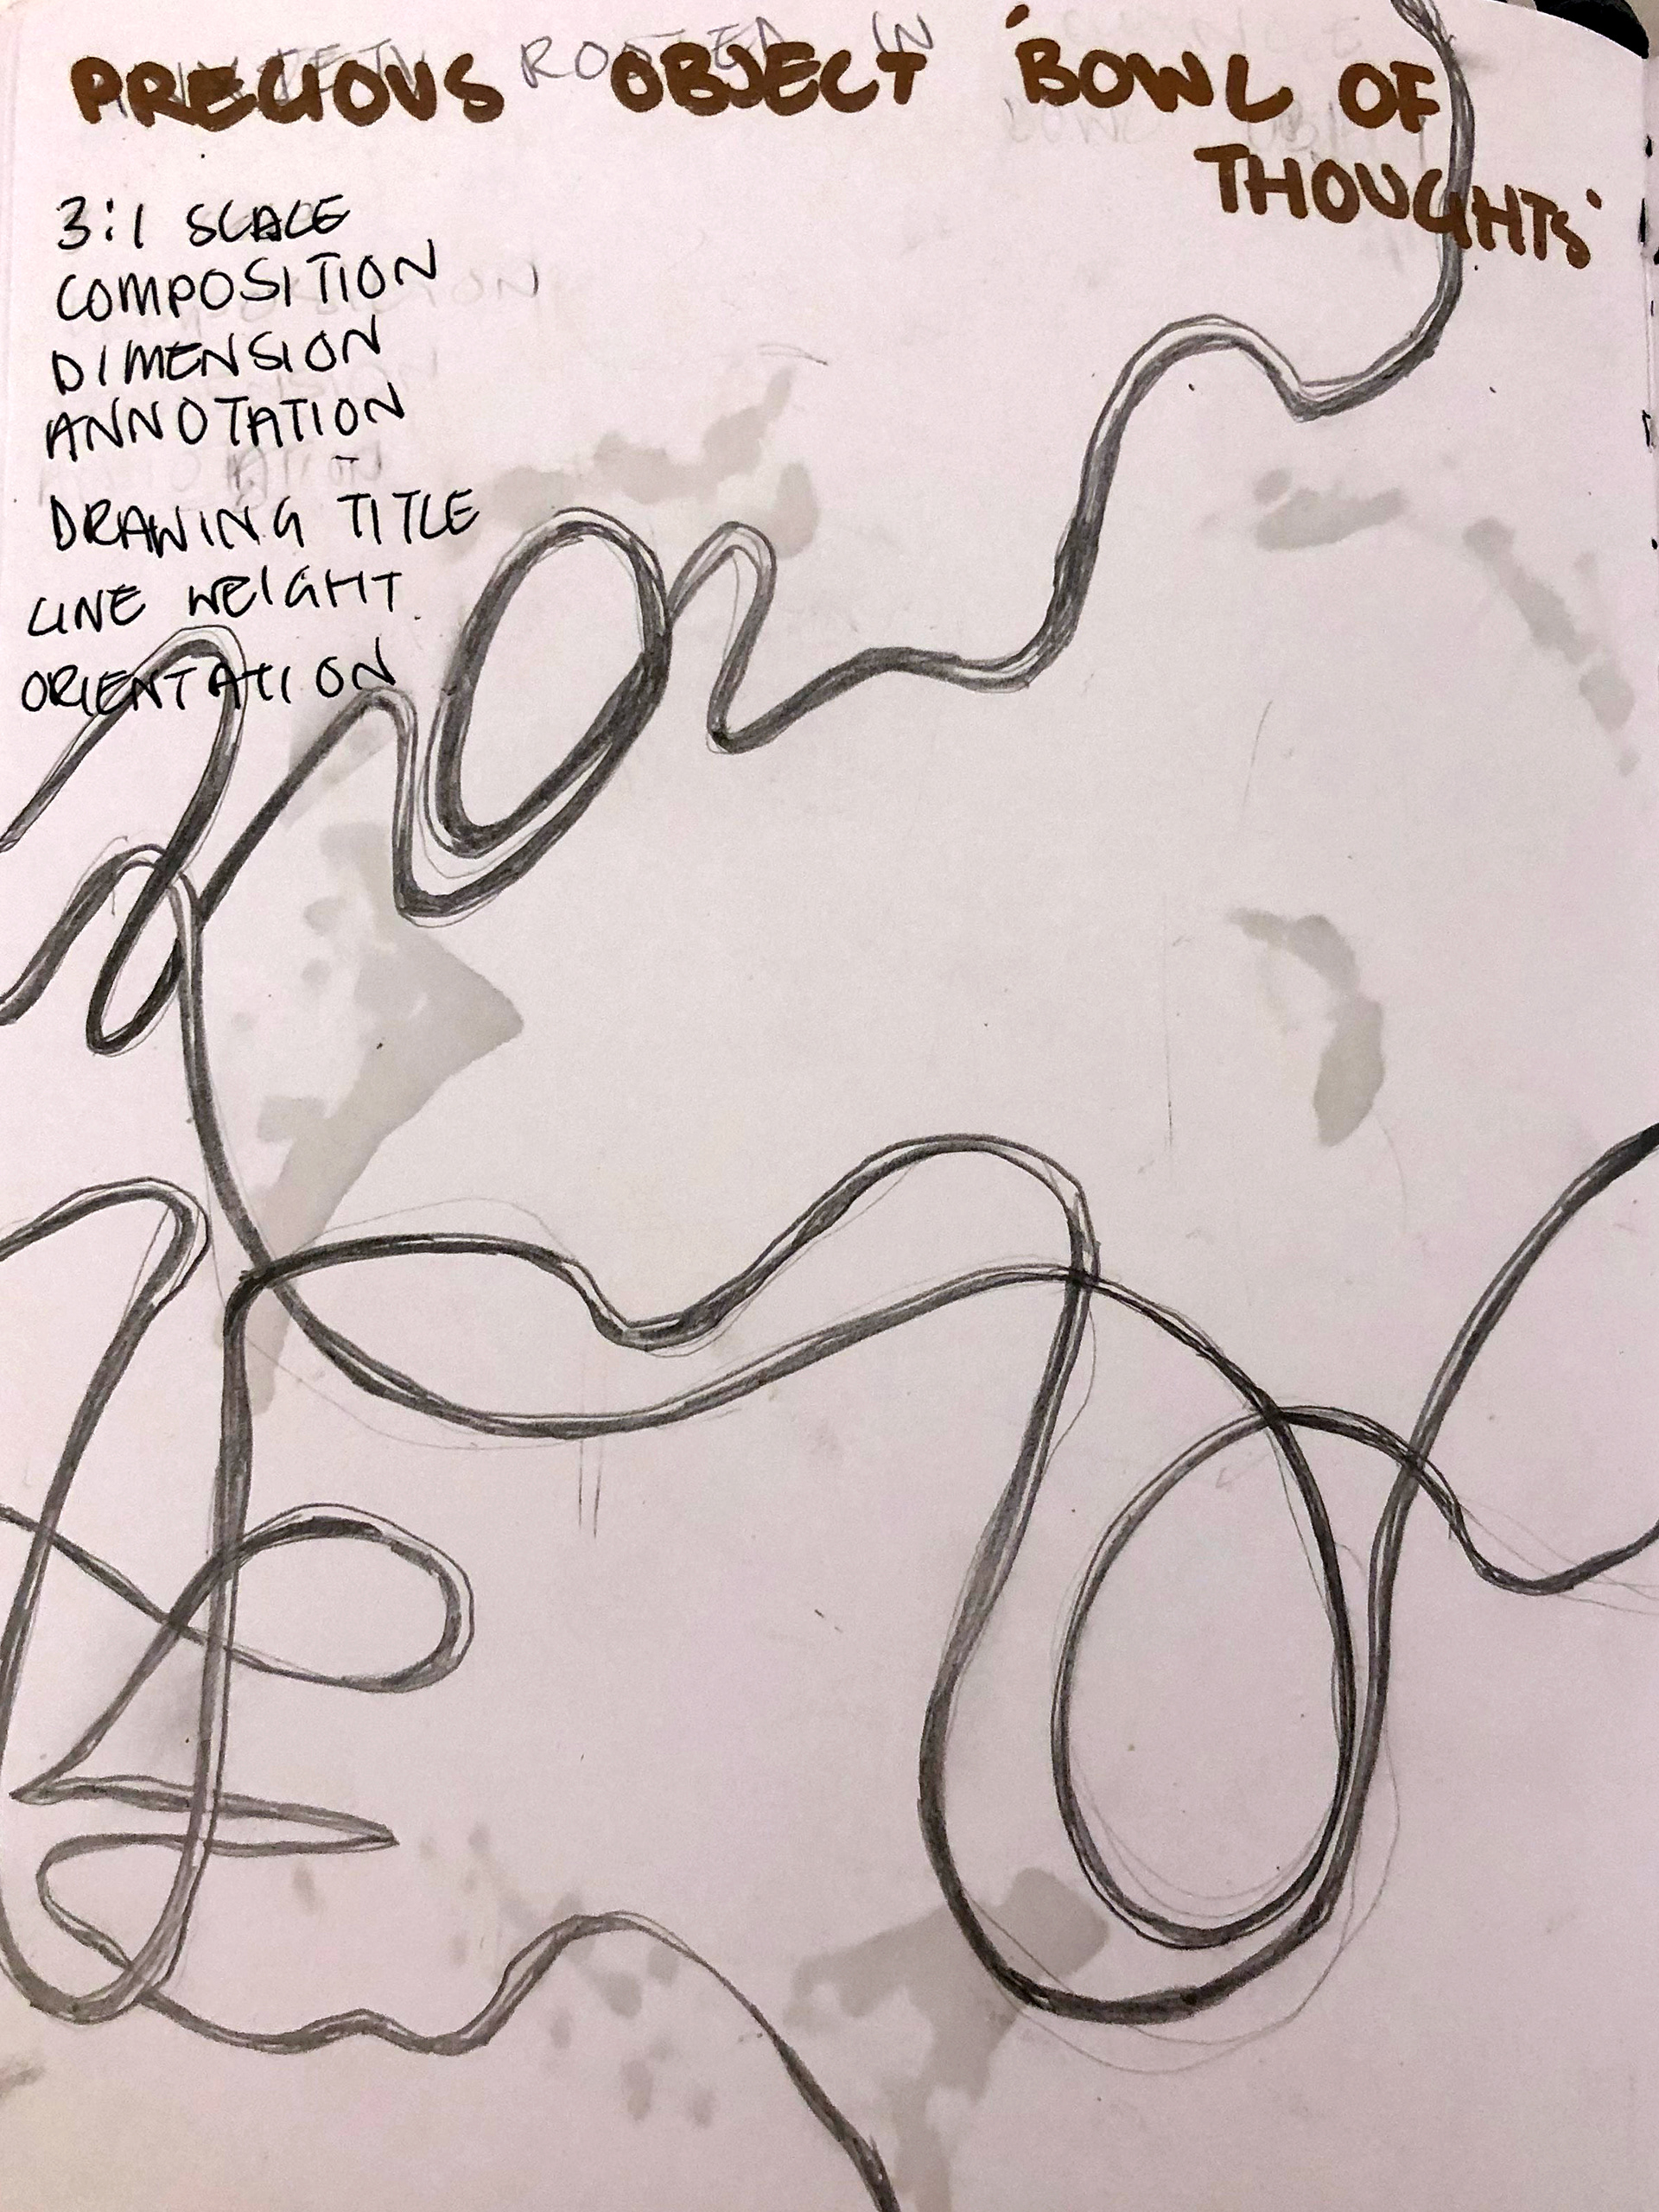 PRECIOUS OBJECT 'BOWL OF
THOUGHTS'
ROOTED IN
3:1 SCALE
COMPOSITION
DIMENSION
ANNOTATION
DRAWING TITLE
LINE WEIGHT
ORIENTATION